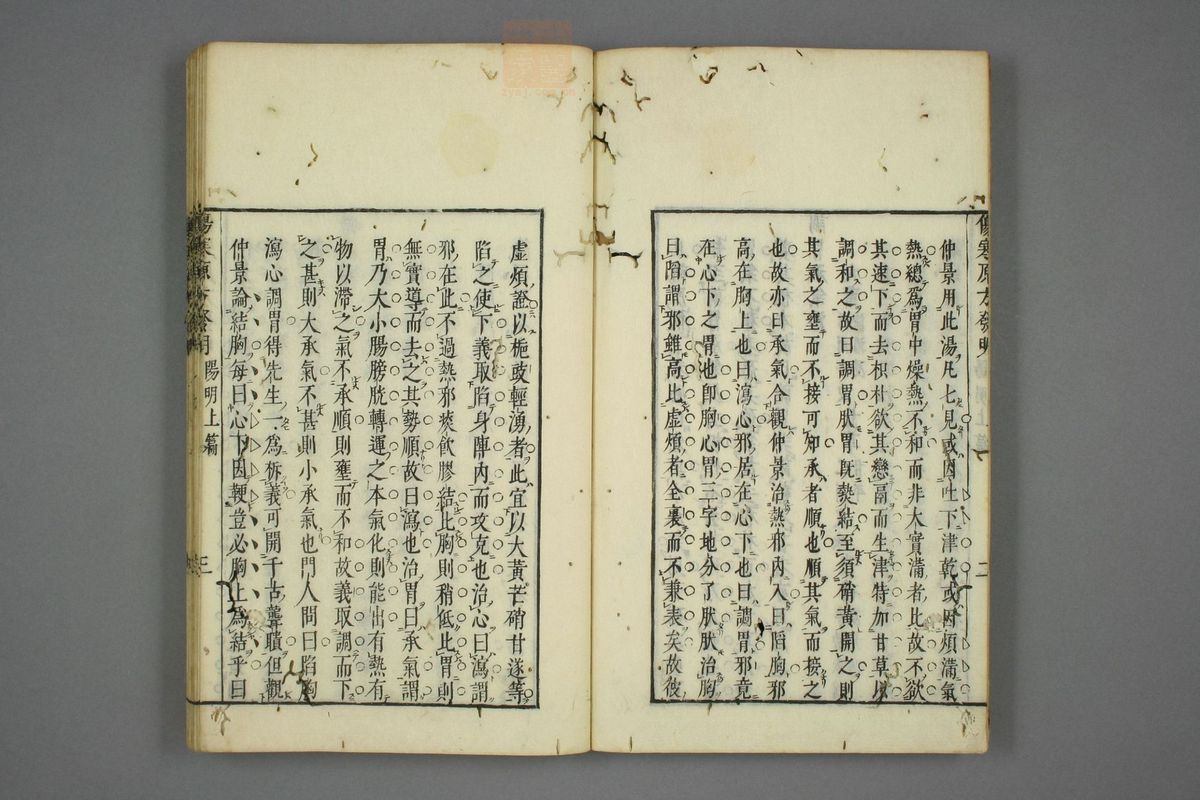 傷寒原方發明
二
仲景用此湯凡七見或因吐下津乾或因煩滿氣
熱總爲胃中燥熱不和而非大實滿者比故不欲
其速下而去枳朴欲其戀鬲而生津特加甘草以
調和之故曰調胃肰胃旣𤍠結至須硝黃開之則
其氣之壅而不接可知承者順也順其氣而接之
也故亦曰承氣合觀仲景治熱邪內入曰陷胸邪
高在胸上也曰瀉心邪居在心下也曰調胃邪竟
在心下之胃也卽胸心胃三字地分了肰肰治胸
曰陷謂邪雖高比虛煩者全裏而不兼表矣故彼
虛煩證以梔豉輕湧者此宜以大黃芒硝甘遂等
陷之使下義取陷身陣內而攻克也治心曰瀉謂
邪在此不過熱邪痰飮膠結此胸則稍低比胃則
無實導而去之其勢順故曰瀉也治胃曰承氣謂
胃乃大小腸膀胱轉運之本氣化則能出有熱有
物以滯之氣不承順則壅而不和故義取調而下
之甚則大承氣不甚則小承氣也門人問曰陷胸
瀉心調胃得先生一一爲析義可開千古聾聵但觀
仲景論結胸每曰心下因鞕豈必胸上爲結乎曰
傷寒原方發明
陽明上篇
三